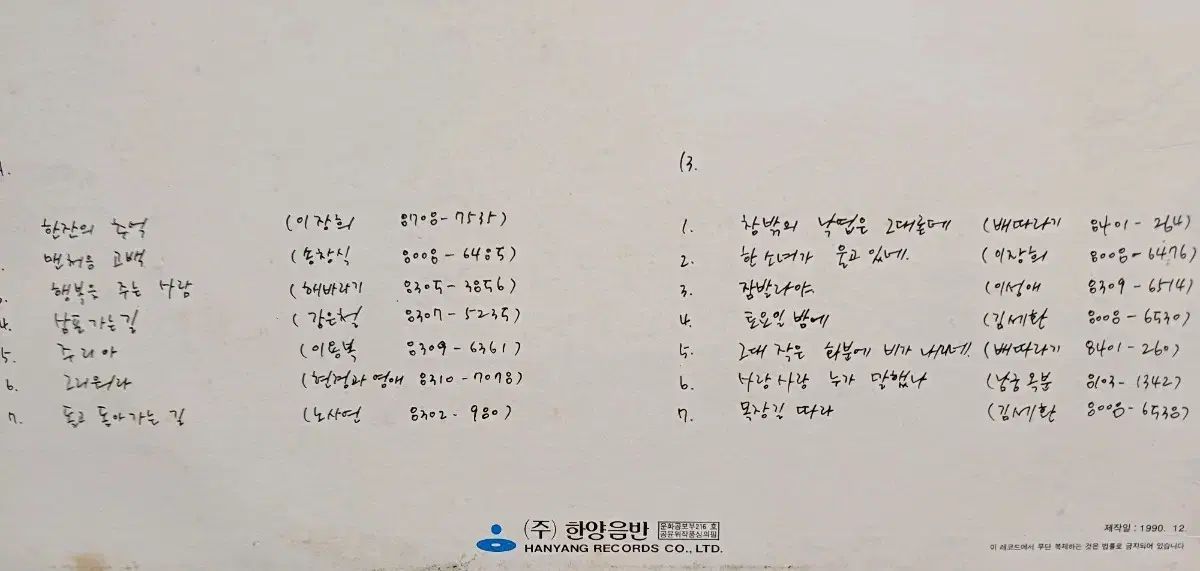 1.
한잔의 추억 (이장희 8708-7535)
맨처음 고백 (송창식 8008-6485)
행복을 주는 사람 (해바라기 8305-3856)
4. 남포 가는길 (강은철 8307-5235)
5. 쥬리아 (이용복 8309-6361)
6. 그리워라 (현경과 영애 8310-7078)
7. 돌고 돌아가는 길 (노사연 8302-980)
B.
1. 창밖의 낙엽은 그대론데 (배따라기 8401-264)
2. 한 소녀가 울고 있네. (이장희 8008-6476)
3. 잠발라야. (이성애 8309-6514)
4. 토요일 밤에 (김세환 8008-6530)
5. 그대 작은 화분에 비가 내리네. (배따라기 8401-260)
6. 사랑 사랑 누가 말했나 (남궁옥분 8103-1342)
7. 목장길 따라 (김세환 8008-6538)
(주) 한양음반 문화공보부216 호 공윤위작품심의필
HANYANG RECORDS CO., LTD.
제작일 : 1990. 12.
이 레코드에서 무단 복제하는 것은 법률로 금지되어 있습니다